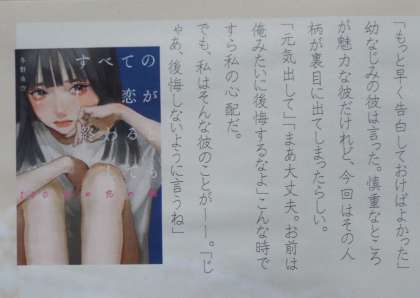 「もっと早く告白しておけばよかった」
幼なじみの彼は言った。慎重なところ
が魅力な彼だけれど、今回はその人
柄が裏目に出てしまったらしい。
「元気出して」「まあ大丈夫。お前は
俺みたいに後悔するなよ」こんな時で
すら私の心配だ。
でも、私はそんな彼のことがーー。「じ
ゃあ、後悔しないように言うね」
すべての
恋が
終わる